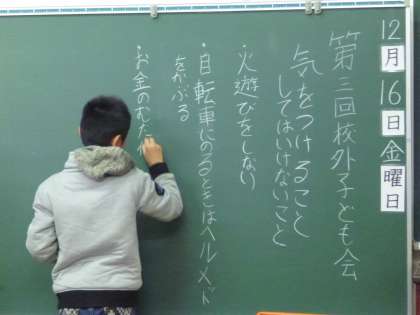 12月16日金曜日
第三回校外子ども会
気をつけること
してはいけないこと
・火遊びをしない
・自転車にのるときはヘルメット
をかぶる
・お金のむだ